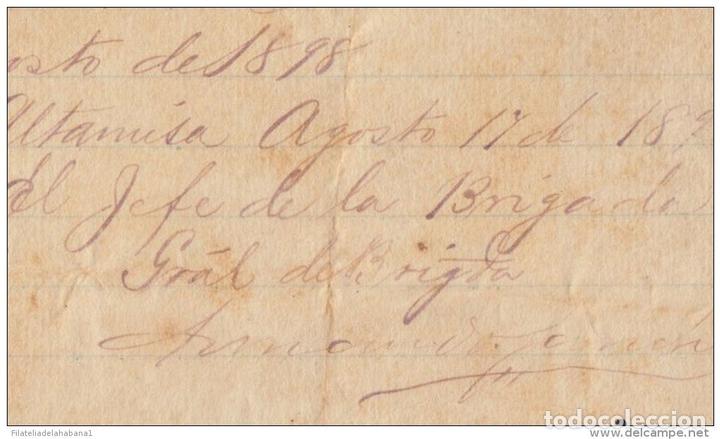 osto de 1898
Altamisa Agosto 17 de 189
El Jefe de la Brigada
Grál de Brigda
Armando
Filateliadelahabana1
todocoleccion
www.delcampe.net